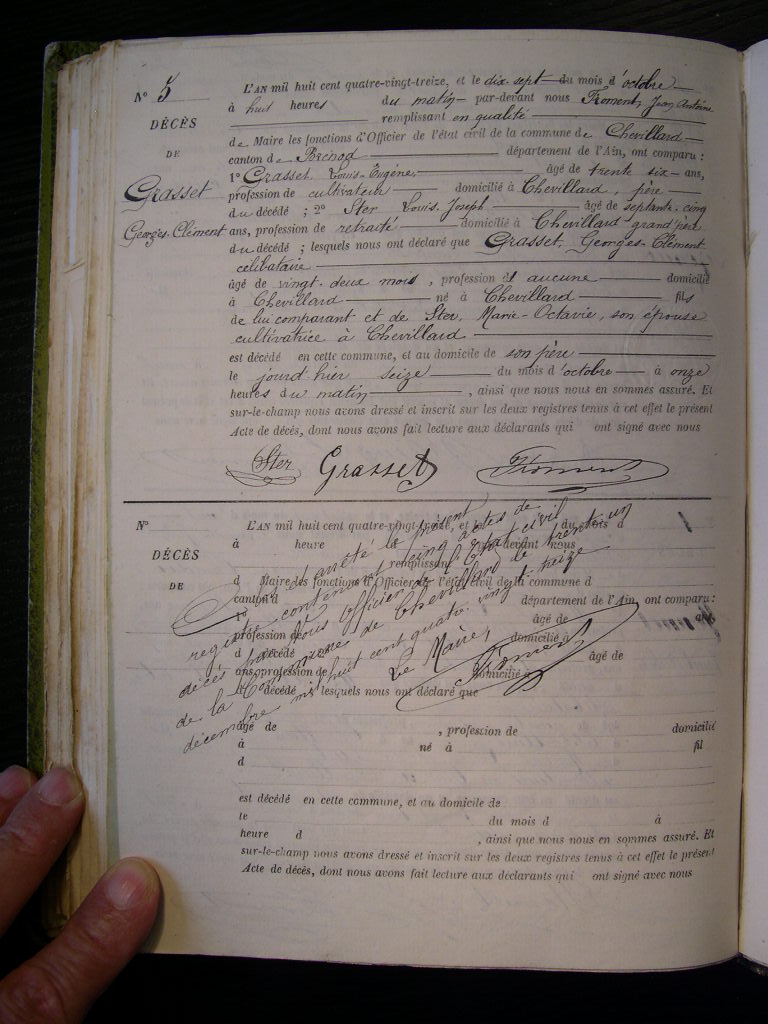 N° 5
DÉCÈS
DE
Grasset
Georges-Clément
L'AN mil huit cent quatre-vingt-treize, et le dix-sept du mois d'octobre
à huit heures du matin par-devant nous Froment, Jean Antoine
remplissant en qualité
de Maire les fonctions d'Officier de l'état civil de la commune de Chevillard
canton de Brénod département de l'Ain, ont comparu :
1° Grasset, Louis-Eugène, âgé de trente six ans,
profession de cultivateur domicilié à Chevillard, père
du décédé ; 2° Ster Louis-Joseph âgé de septante-cinq
ans, profession de retraité domicilié à Chevillard grand père
du décédé ; lesquels nous ont déclaré que Grasset, Georges-Clément
célibataire
âgé de vingt-deux mois, profession d aucune domicilié
à Chevillard né à Chevillard fils
de lui comparant et de Ster, Marie-Octavie, son épouse
cultivatrice à Chevillard
est décédé en cette commune, et au domicile de son père
le jourd'hier seize du mois d'octobre à onze
heures du matin, ainsi que nous nous en sommes assuré. Et
sur-le-champ nous avons dressé et inscrit sur les deux registres tenus à cet effet le présent
Acte de décès, dont nous avons fait lecture aux déclarants qui ont signé avec nous
Ster Grasset Froment
N°
DÉCÈS
DE
L'AN mil huit cent quatre-vingt-treize, et le du mois d
à heure par-devant nous
remplissant
d Maire les fonctions d'Officier de l'état civil de la commune d
canton d département de l'Ain, ont comparu :
1° âgé de
profession de domicilié à
d décédé âgé de
ans, profession de domicilié à
d décédé lesquels nous ont déclaré que
et arrêté le présent
registre contenant cinq actes de
décès par Nous Officier de l'État civil
de la Commune de Chevillard le trente un
décembre mil huit cent quatre-vingt-treize
Le Maire,
Froment
âgé de , profession de domicilié
à né à fil
d
est décédé en cette commune, et au domicile de
le du mois d à
heure d , ainsi que nous nous en sommes assuré. Et
sur-le-champ nous avons dressé et inscrit sur les deux registres tenus à cet effet le présent
Acte de décès, dont nous avons fait lecture aux déclarants qui ont signé avec nous